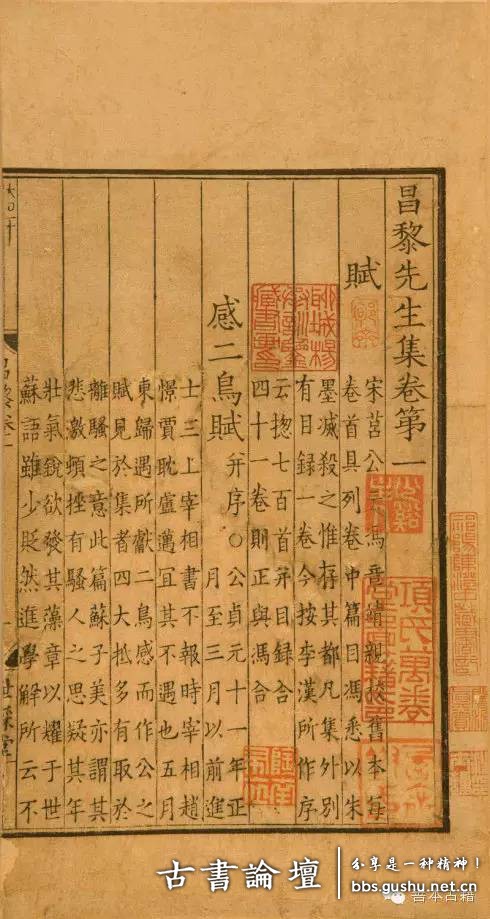 昌黎先生集卷第一
賦
宋莒公云馮章靖親校舊本每
卷首具列卷中篇目馮悉以朱
墨滅殺之惟存其都凡集外別
有目録一卷今按李漢所作序
云揔七百首并目録合
四十一卷則正與馮合
感二鳥賦 并序〇公貞元十一年正
月至三月以前進
士三上宰相書不報時宰相趙
憬賈耽盧邁冝其不遇也五月
東歸遇所獻二鳥感而作公之
賦見於集者四大抵多有取於
離騷之意此篇蘇子美亦謂其
悲激頓挫有騷人之思疑其年
壯氣銳欲發其藻章以耀于世
蘇語雖少貶然進學解所云不
世綵堂
項氏萬卷
古書論壇
分享是一種精神!
bbs.gushu.net.cn
善本古籍